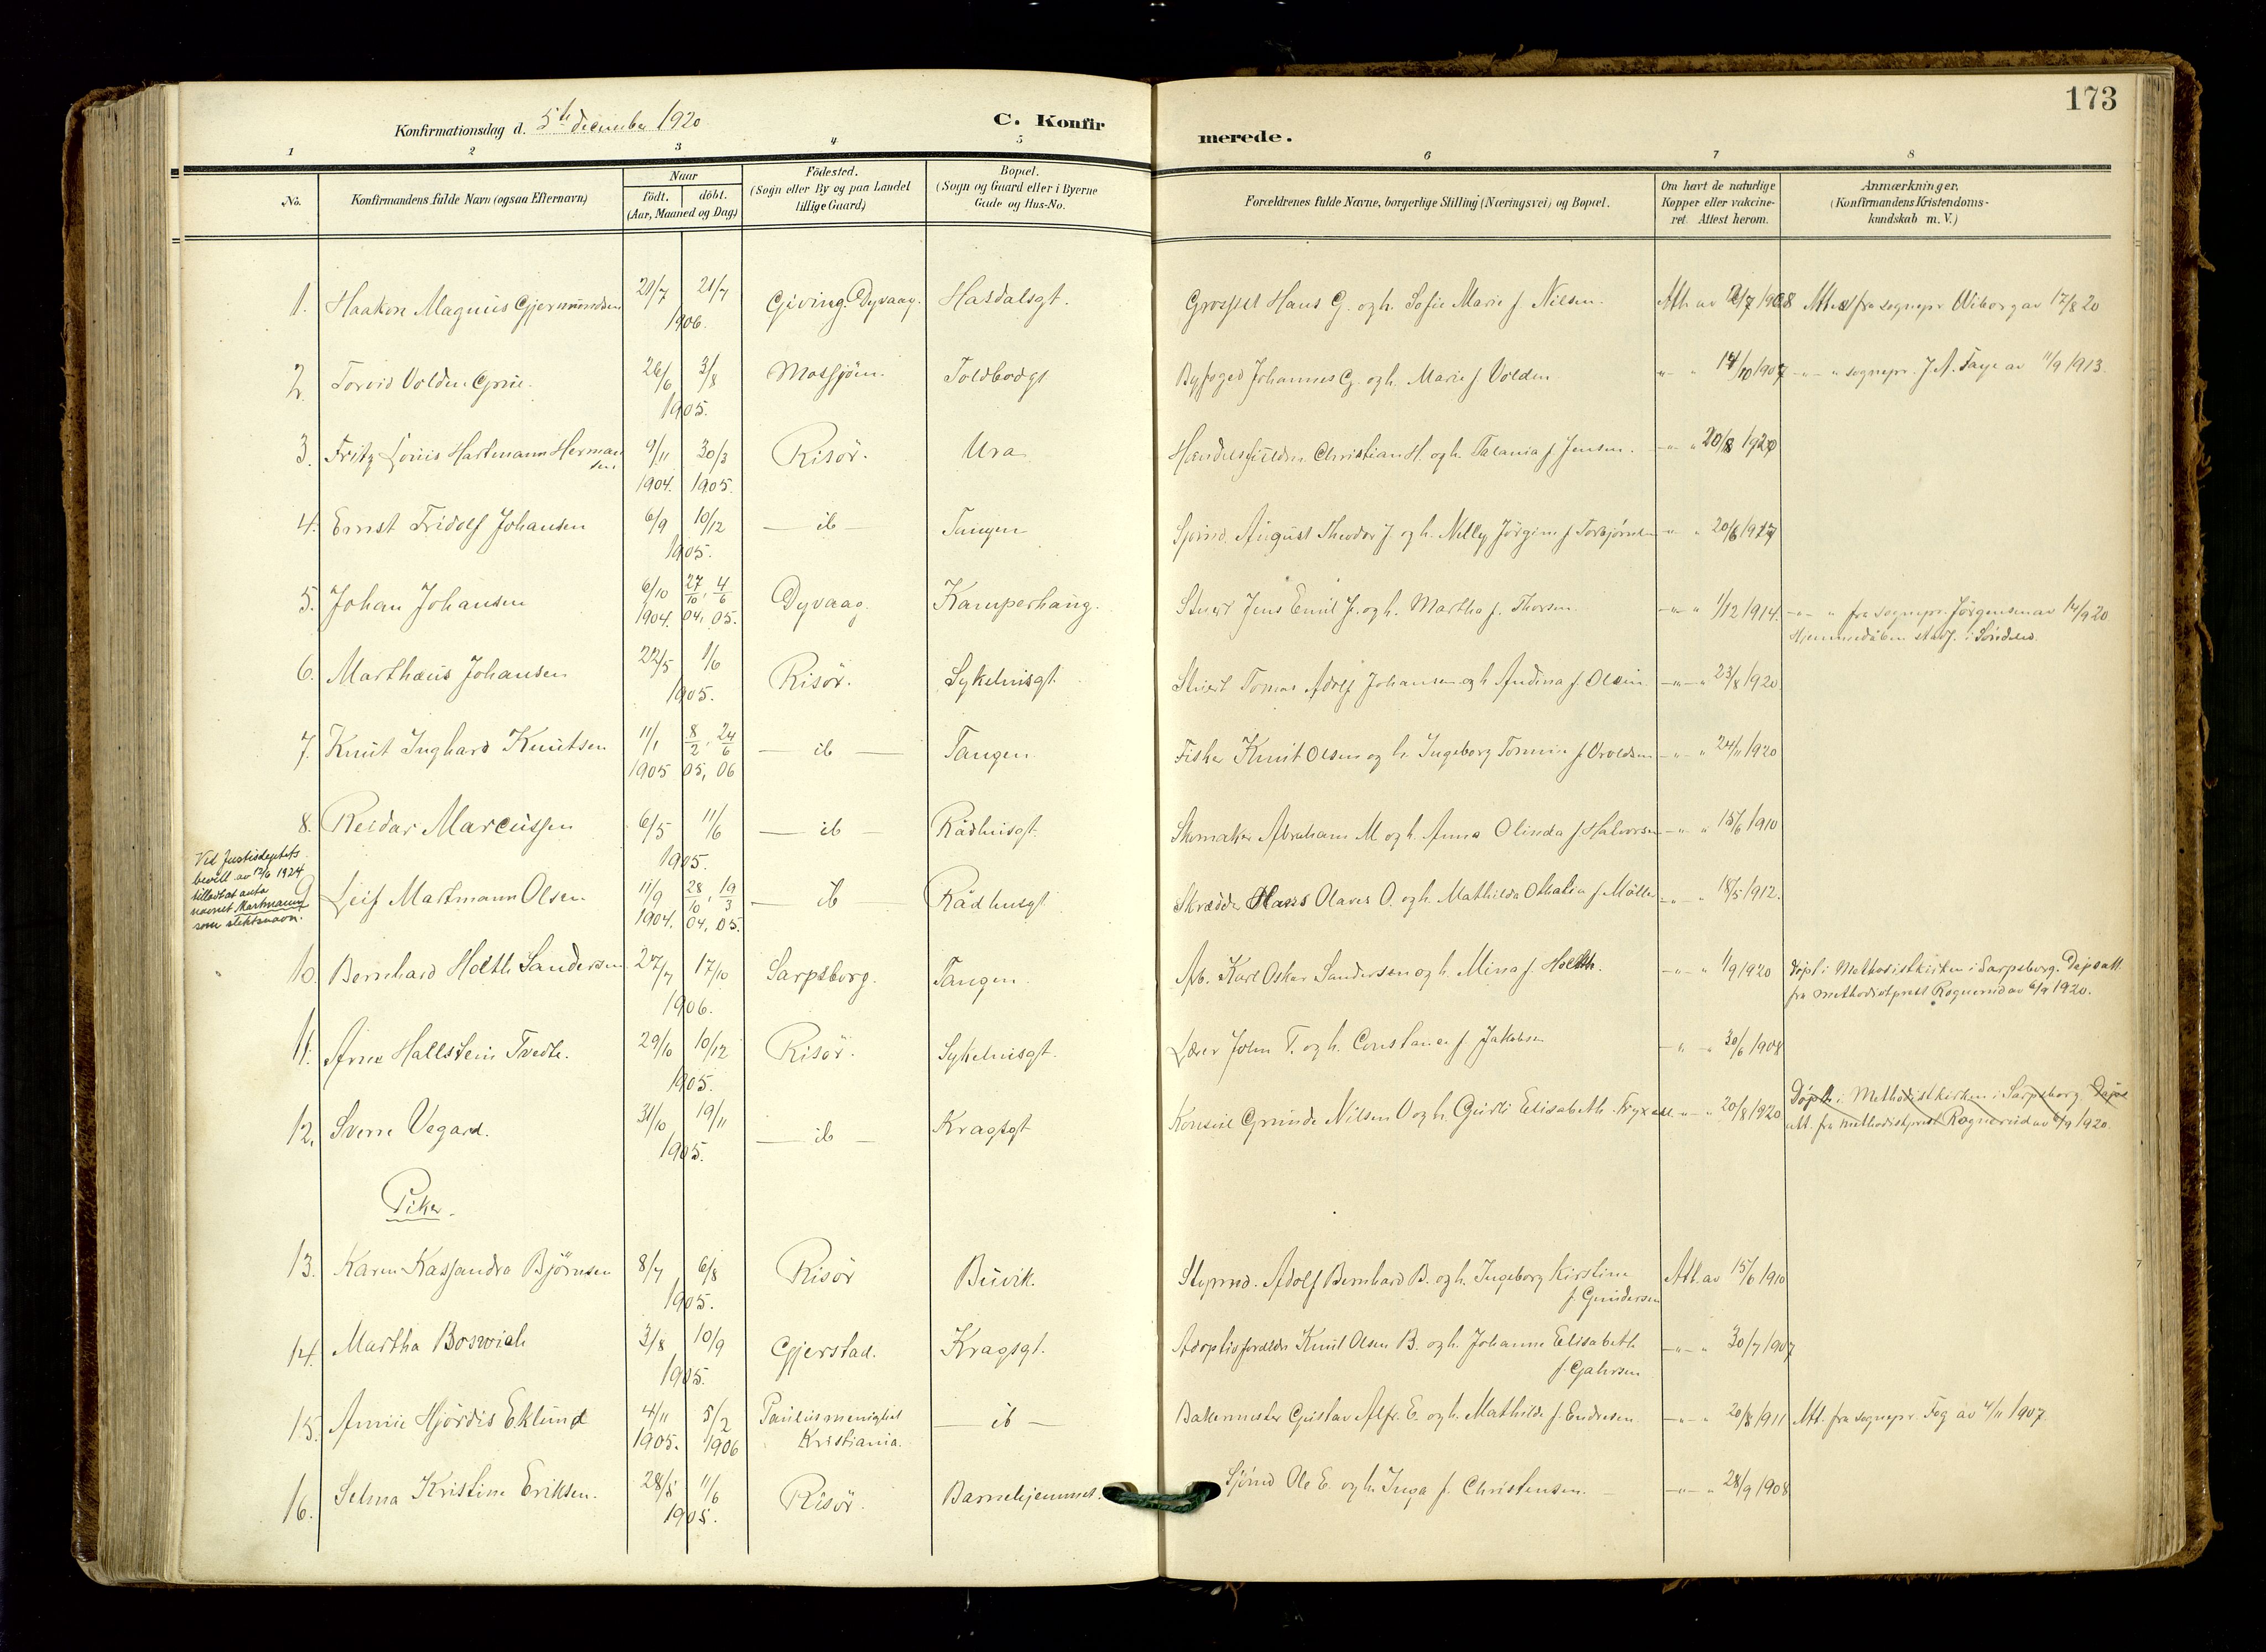 173
Konfirmationsdag d. 5te december 1920
C. Konfirmerede.
1 2 3 4 5 6 7 8
No.
Konfirmandens fulde Navn (ogsaa Efternavn)
Naar
födt. döbt.
(Aar, Maaned og Dag)
Födested.
(Sogn eller By og paa Landet
tillige Gaard)
Bopæl.
(Sogn og Gaard eller i Byerne
Gade og Hus-No.
Forældrenes fulde Navne, borgerlige Stilling (Næringsvei) og Bopæl.
Om havt de naturlige
Kopper eller vakcine-
ret. Attest herom.
Anmærkninger,
(Konfirmandens Kristendoms-
kundskab m. V.)
1. Haakon Magnus Gjermundsen 21/7 1906. Giving. Dyvaag. Hasdalsgt. Hans G. og h. Sofie Marie f. Nilsen. Att. av /7 1908 Att. fra sognepr. Wiborg av 17/8 20
2. Torvid Volden Grue. 26/6 3/8 1905. Mosjöen. Toldbodgt Byfoged Johannes G. og h. Marie f Volden 14/10 1907 sognepr. J. A. Faye av 11/9 1913.
3. Fritz Louis Hartmann Herman
sen 9/11 1904. 30/3 1905. Risör. Ura Christian H. og h. Talania f. Jensen. 20/8 1920
4. Ernst Fridolf Johansen 6/9 10/12 1905. ib Tangen Sjömd. August Theodor J. og h. Nelly Jörgine f Torbjörnsen 20/6 1917
5. Johan Johansen 6/10 1904. 27/10, 4/6 04, 05. Dyvaag. Kamperhaug. Stuert Jens Emil J. og h. Martha f. Thorsen. 1/12 1914. fra sognepr. Jörgensen av 14/9 20
Hjemmedåben i Söndeled.
6. Marthæus Johansen 22/5 1/6 1905. Risör. Sykehusgt. Stuert Tomas Adolf Johansen og h Andina f. Olsen 23/8 1920.
7. Knut Inghard Knutsen 11/1 1905 8/2, 24/6 05, 06 ib Tangen. Fisker Knut Olsen og h. Ingeborg Tomine f. Oroldsen 24/11 1920
8. Reidar Marcussen 6/5 11/6 1905. ib Rådhusgt. Skomaker Abraham M og h. Anna Olinda f Halvorsen 15/6 1910
Ved Justisdeptets
bevill. av 12/6 1924
tillatt at anta
navnet Martmann
som slektsnavn.
9 Leif Martmann Olsen 11/9 1904. 28/10, 19/3 04, 05. ib Rådhusgt Skrædder Hans Olaves O. og h. Mathilda Othalia f Möller 18/5 1912.
10. Bernhard Holth Sandersen 27/7 17/10 1906. Sarpsborg. Tangen. Arb. Karl Oskar Sandersen og h. Mina f. Holth. 1/9 1920 Döpt i Methodistkirken i Sarpsborg. Dåpsatt.
fra methodistprest Rognerud av 6/9 1920.
11. Arne Hallstein Tvedte. 29/10 10/12 1905. Risör. Sykehusgt. Lærer John T. og h. Constance f Jakobsen 30/6 1908
12. Sverre Vegard. 31/10 19/11 1905. ib Kragsgt Konsul Grunde Nilsen V og h. Gurli Elisabeth f. Fryxell 20/8 1920 Döpt i Methodistkirken i Sarpsborg. Dåps
att. fra methodistprest Rognerud av 6/9 1920.
Piker.
13. Karen Kassandra Björnsen 8/7 6/8 1905. Risör Buvik. Styrmd. Adolf Bernhard B. og h. Ingeborg Kirstine
f. Gundersen Att. av 15/6 1910
14. Martha Boswich 3/8 10/9 1905. Gjerstad. Kragsgt. Adoptivforældre Knut Olsen B. og h. Johanne Elisabeth
f. Gahrsen 30/7 1907
15. Annie Hjördis Eklund 4/11 1905. 5/2 1906 Paulus menighet
Kristiania. ib Bakermester Gustav Alfr. E. og h. Mathilde f. Endresen. 20/8 1911 Att. fra sognepr. Fog av 4/11 1907.
16. Selma Kristine Eriksen. 28/5 11/6 1905. Risör. Barnehjemmet. Sjömd Ole E. og h. Inga f. Christensen. 28/9 1908